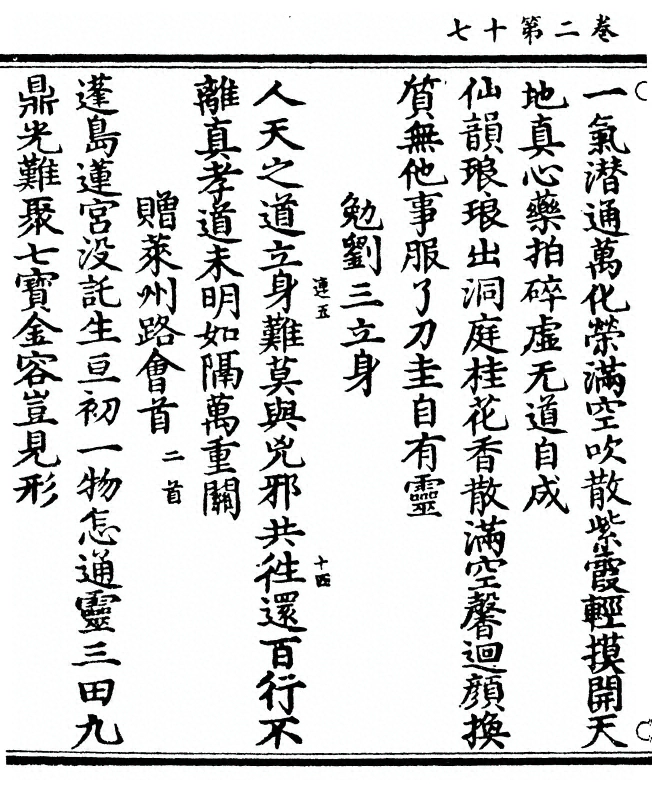 七十第二卷
一氣潜通萬化榮滿空吹散紫霞輕摸開天
地真心藥拍碎虚无道自成
仙韻琅琅出洞庭桂花香散滿空馨迴顔換
質無他事服了刀圭自有靈
勉劉三立身
連五
十四
人天之道立身難莫與兇邪共徃還百行不
離真孝道未明如隔萬重關
贈萊州路會首 二首
蓬島蓮宮没託生亘初一物怎通靈三田九
鼎光難聚七寶金容豈見形